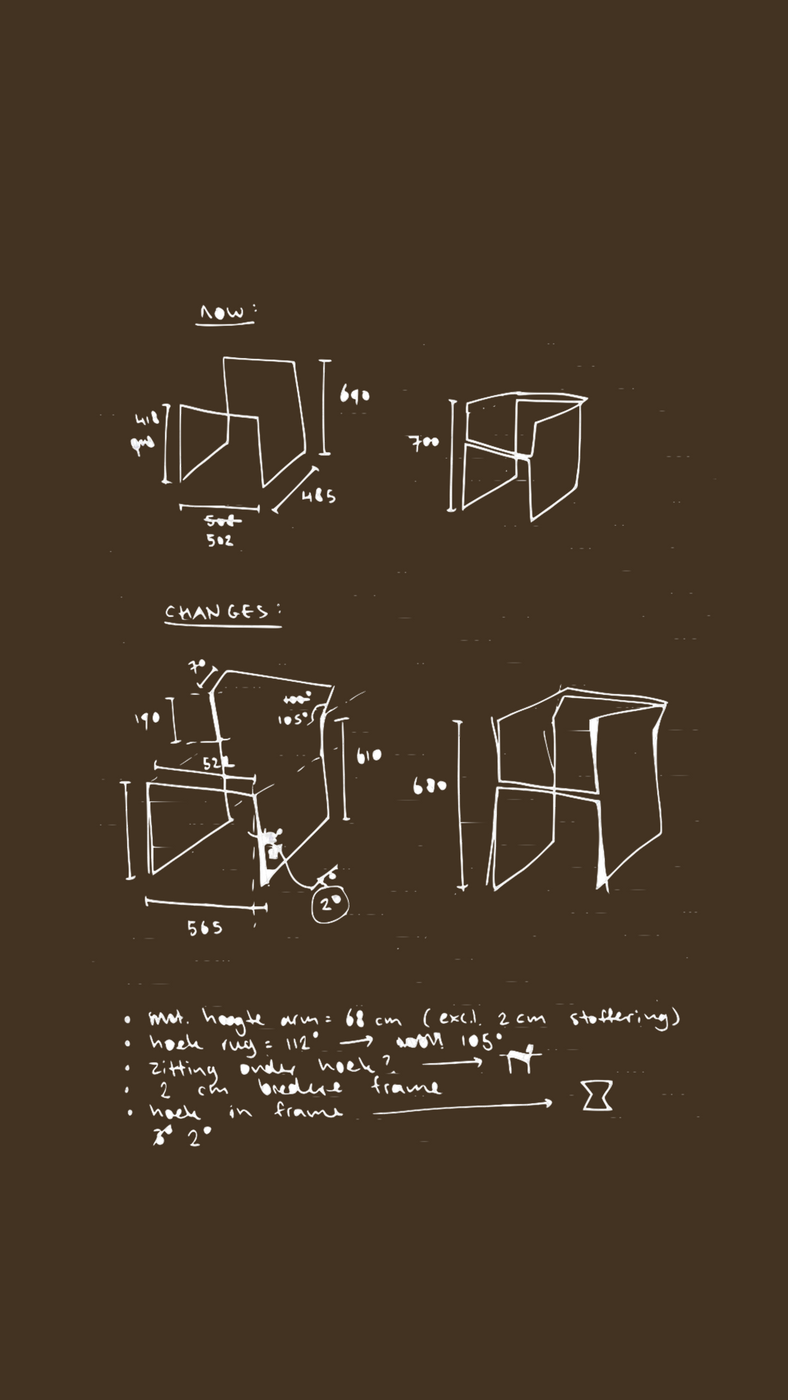 NOW:
418
690
700
485
502
CHANGES:
70
190
105°
522
610
680
2°
565
• mat. hoogte arm = 68 cm (excl. 2 cm stoffering)
• hoek rug = 112° → 105°
• zitting onder hoek? →
• 2 cm bredere frame
• hoek in frame →
2°